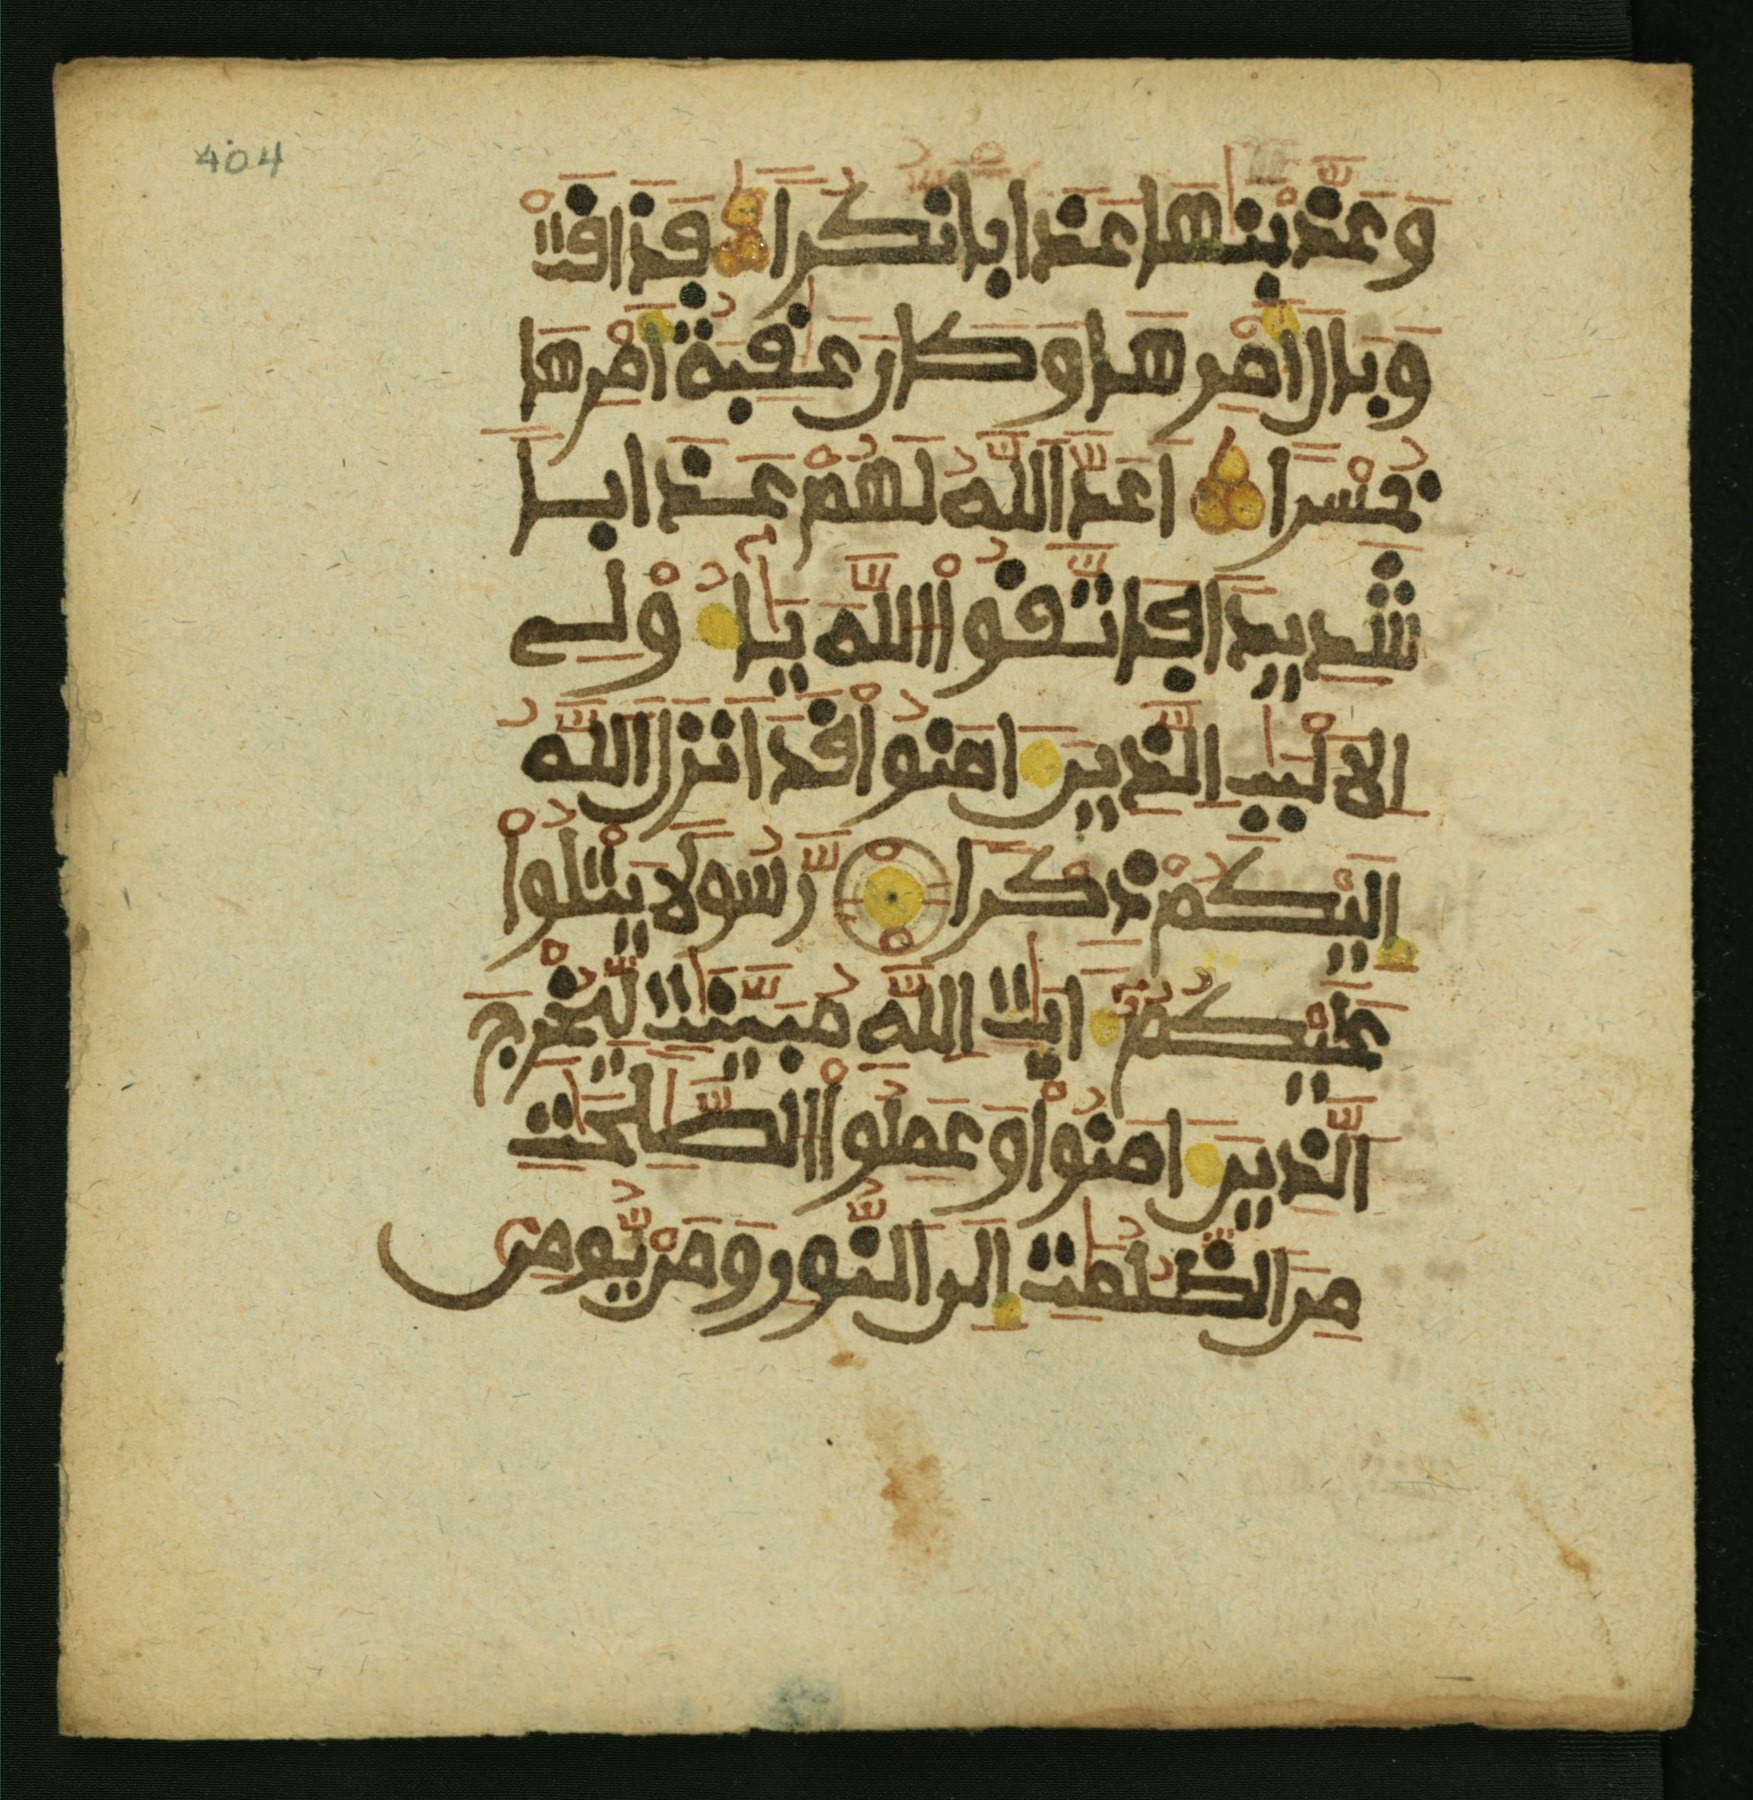 404
وَعَذَّبْنَٰهَا عَذَابًا نُّكْرًا فَذَاقَتْ
وَبَالَ أَمْرِهَا وَكَانَ عَٰقِبَةُ أَمْرِهَا
خُسْرًا اَعَدَّ اَللَّهُ لَهُمْ عَذَابًا
شَدِيدًا فَاتَّقُواْ اُللَّهَ يَٰأُوْلِے
اِلَالْبَٰبِ اِلَّذِينَ ءَامَنُواْ قَدَ اَنزَلَ اَللَّهُ
إِلَيْكُمْ ذِكْرًا رَّسُولًا يَتْلُواْ
عَلَيْكُمُۥٓ ءَايَٰتِ اِللَّهِ مُبَيَّنَٰتٍ لِّيُخْرِجَ
اَلَّذِينَ ءَامَنُواْ وَعَمِلُواْ اُلصَّٰلِحَٰتِ
مِنَ اَلظُّلُمَٰتِ إِلَى اَلنُّورِ وَمَنْ يُّومِنۢ